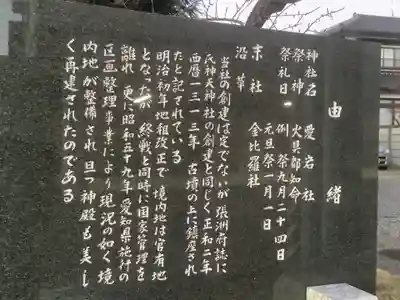 由緒
神社名 愛宕社
祭神 火具部知命
祭礼日 例祭九月二十四日
元旦祭一月一日
末社 金比羅社
沿革
当社の創建は定でないが張洲府誌に
氏神天神社の創建と同じく正和二年
西暦一三一三年 古墳の上に鎮座され
たと記されている
明治初年地租改正で境内地は官有地
となったが 終戦と同時に国家管理を
離れ 更に昭和五十九年愛知県施行の
区画整理事業により現況の如く境
内地が整備され 且つ神殿も美し
く再建されたのである